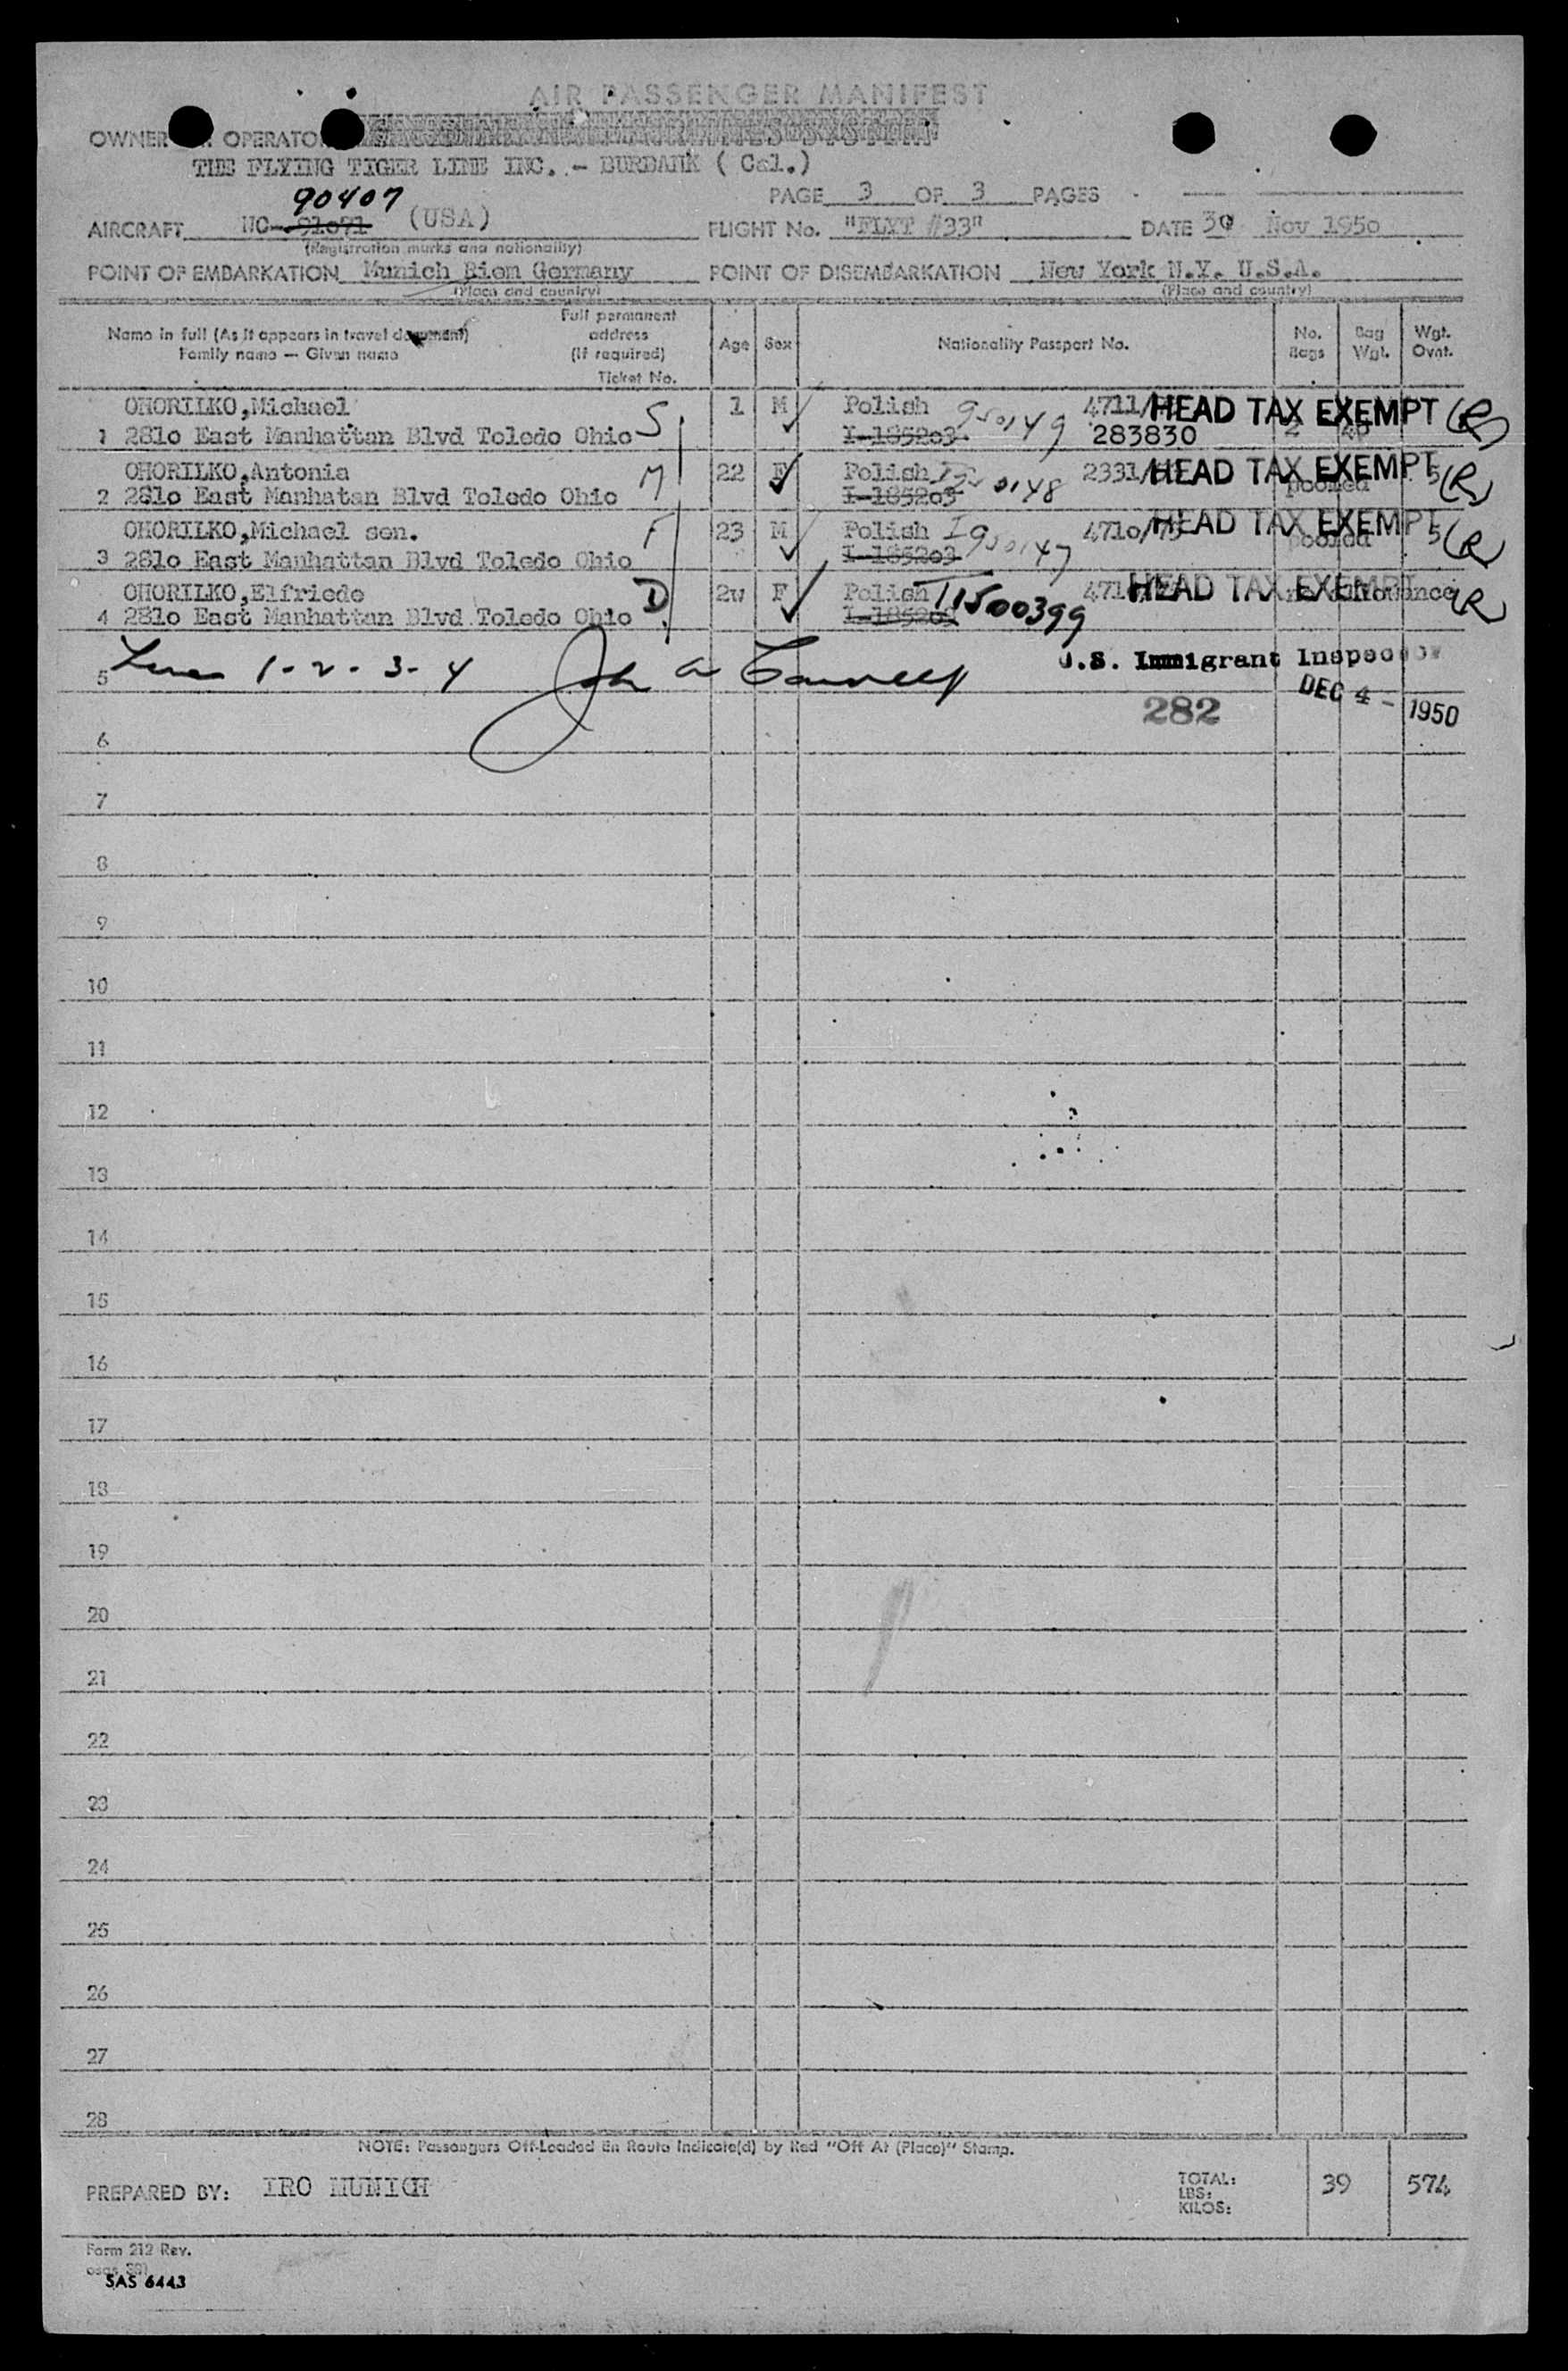 AIR PASSENGER MANIFEST
OWNER OPERATOR
THE FLYING TIGER LINE INC. - BURBANK ( Cal.)
90407
PAGE 3 OF 3 PAGES
AIRCRAFT NC-91071 (USA) FLIGHT No. "FLYT #33" DATE 30 Nov 1950
(Registration marks and nationality)
POINT OF EMBARKATION Munich Riem Germany POINT OF DISEMBARKATION New York N.Y. U.S.A.
(Place and country) (Place and country)
Name in full (As it appears in travel document) Full permanent address (If required) Age Sex Nationality Passport No. No. Bags Bag Wgt. Wgt. Ovnt.
Family name — Given name Ticket No.
OHORILKO,Michael S. 1 M Polish 950149 4711/ HEAD TAX EXEMPT (R)
1 2810 East Manhattan Blvd Toledo Ohio I-185203 283830 2
OHORILKO,Antonia M 22 F Polish 2331/ HEAD TAX EXEMPT 5 (R)
2 2810 East Manhatan Blvd Toledo Ohio I-185203 0148 pooled
OHORILKO,Michael sen. F 23 M Polish I950147 4710/ HEAD TAX EXEMPT 5 (R)
3 2810 East Manhattan Blvd Toledo Ohio I-185203 pooled
OHORILKO,Elfriede D. F Polish T1500399 HEAD TAX EXEMPT (R)
4 2810 East Manhattan Blvd Toledo Ohio I-185203
5 1-2-3-4 John A U.S. Immigrant Inspector
282 DEC 4 - 1950
6
7
8
9
10
11
12
13
14
15
16
17
18
19
20
21
22
23
24
25
26
27
28
NOTE: Passengers Off-Loaded En Route Indicate(d) by Red "Off At (Place)" Stamp.
PREPARED BY: IRO MUNICH TOTAL: 39 574
LBS:
KILOS:
Form 212 Rev.
SAS 6443